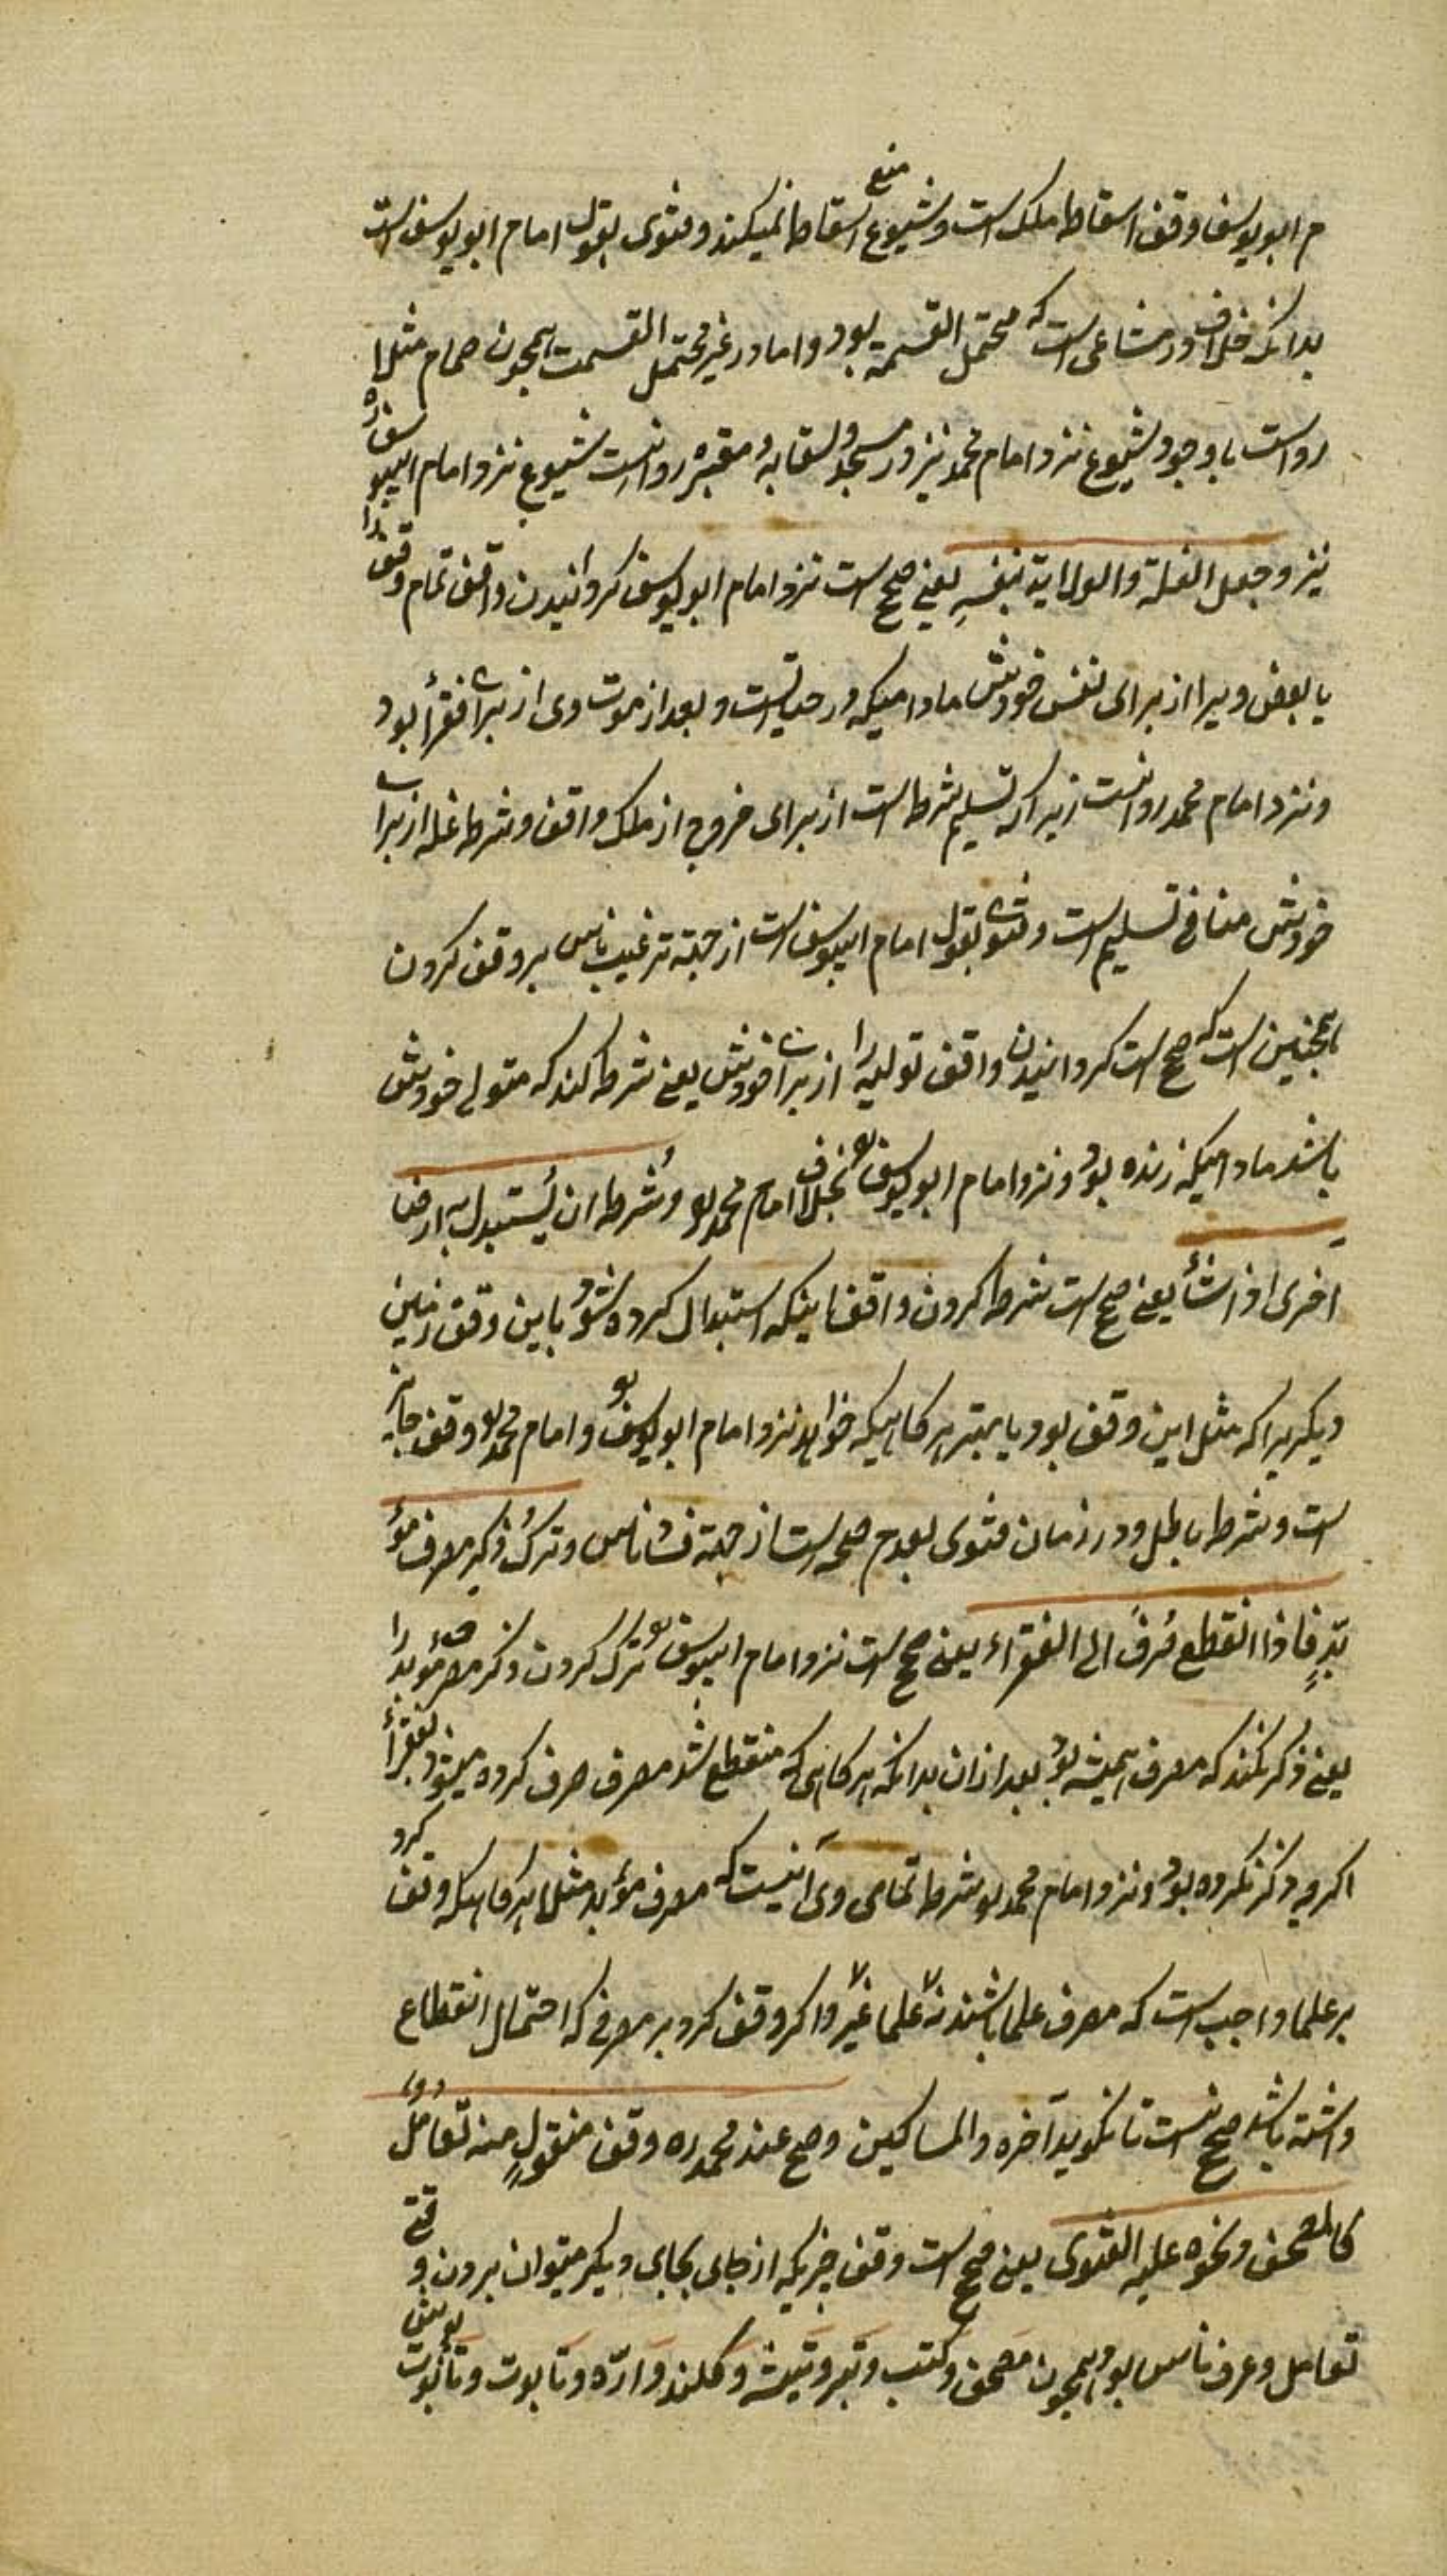 م ابو یوسف وقف اسقاط ملک است و شیوع منع اسقاط نمیکند و فتوی بقول امام ابو یوسف است
بدانکه خلاف در مشاعی است که محتمل القسمة بود و اما در غیر محتمل القسمت همچون حمام مثلا
رواست با وجود شیوع نزد امام محمد نیز و در مسجد و سقایه و مقبره روا نیست شیوع نزد امام ابیوسف ره
نیز و جعل الغلة والولایة لنفسهِ یعنی صحیح است نزد امام ابو یوسف کردانیدن واقف تمام وقف را
یا بعض ویرا از برای نفس خودش مادامیکه در حیاتست و بعد از موت وی از برای فقرأ بود
و نزد امام محمد روا نیست زیرا که تسلیم شرط است از برای خروج از ملک واقف و شرط غله از برای
خودش منافی تسلیم است و فتوی بقول امام ابیوسف است از جهة ترغیب ناس بر وقف کردن
همچنین است که صحیح است کردانیدن واقف تولیه را از برای خودش یعنی شرط کند که متولی خودش
باشد مادامیکه زنده بود و نزد امام ابو یوسف بخلاف امام محمد و شرط ان یُستبدل به ارضا
اخری اذا شأ یعنی صحیح است شرط کردن واقف اینکه استبدال کرده شود باین وقف زمین
دیکریرا که مثل این وقف بود یا بهتر هر کاهیکه خواهد نزد امام ابو یوسف و امام محمد وقف جایز
است و شرط باطل و در زمان فتوی بعدم صحه است از جهة فساد ناس و ترک ذکر مصرف مؤ
بّدٍ فاذا انقطع صُرفَ الی الفقراء یعنی صحیح است نزد امام ابیوسف ترک کردن ذکر مصرف مؤبد را
یعنی ذکر نکند که مصرف همیشه بود بعد از ان بدانکه هر کاهی که منقطع شد مصرف صرف کرده میشود بفقرأ
اکرچه ذکر نکرده بود و نزد امام محمد شرط تمامی وی آنیست که مصرف مؤبد مثلا هر کاهیکه وقف کرد
بر علما واجب است که مصرف علما باشند نه علما غیر و اکر وقف کرد بر مصرفی که احتمال انقطاع
داشته باشد صحیح نیست تا نکوید آخره والمساکین وصح عند محمد ره وقف منقولٍ فیه تعاملٌ
کالمصحف ونحوه علیه الفتوی یعنی صحیح است وقف چیزیکه از جای بجای دیکر میتوان بردن و
تعامل و عرف ناس بود همچون مصحف و کتب و تبر و تیشه و کلند و ارّه و تابوت و تابوت پوش